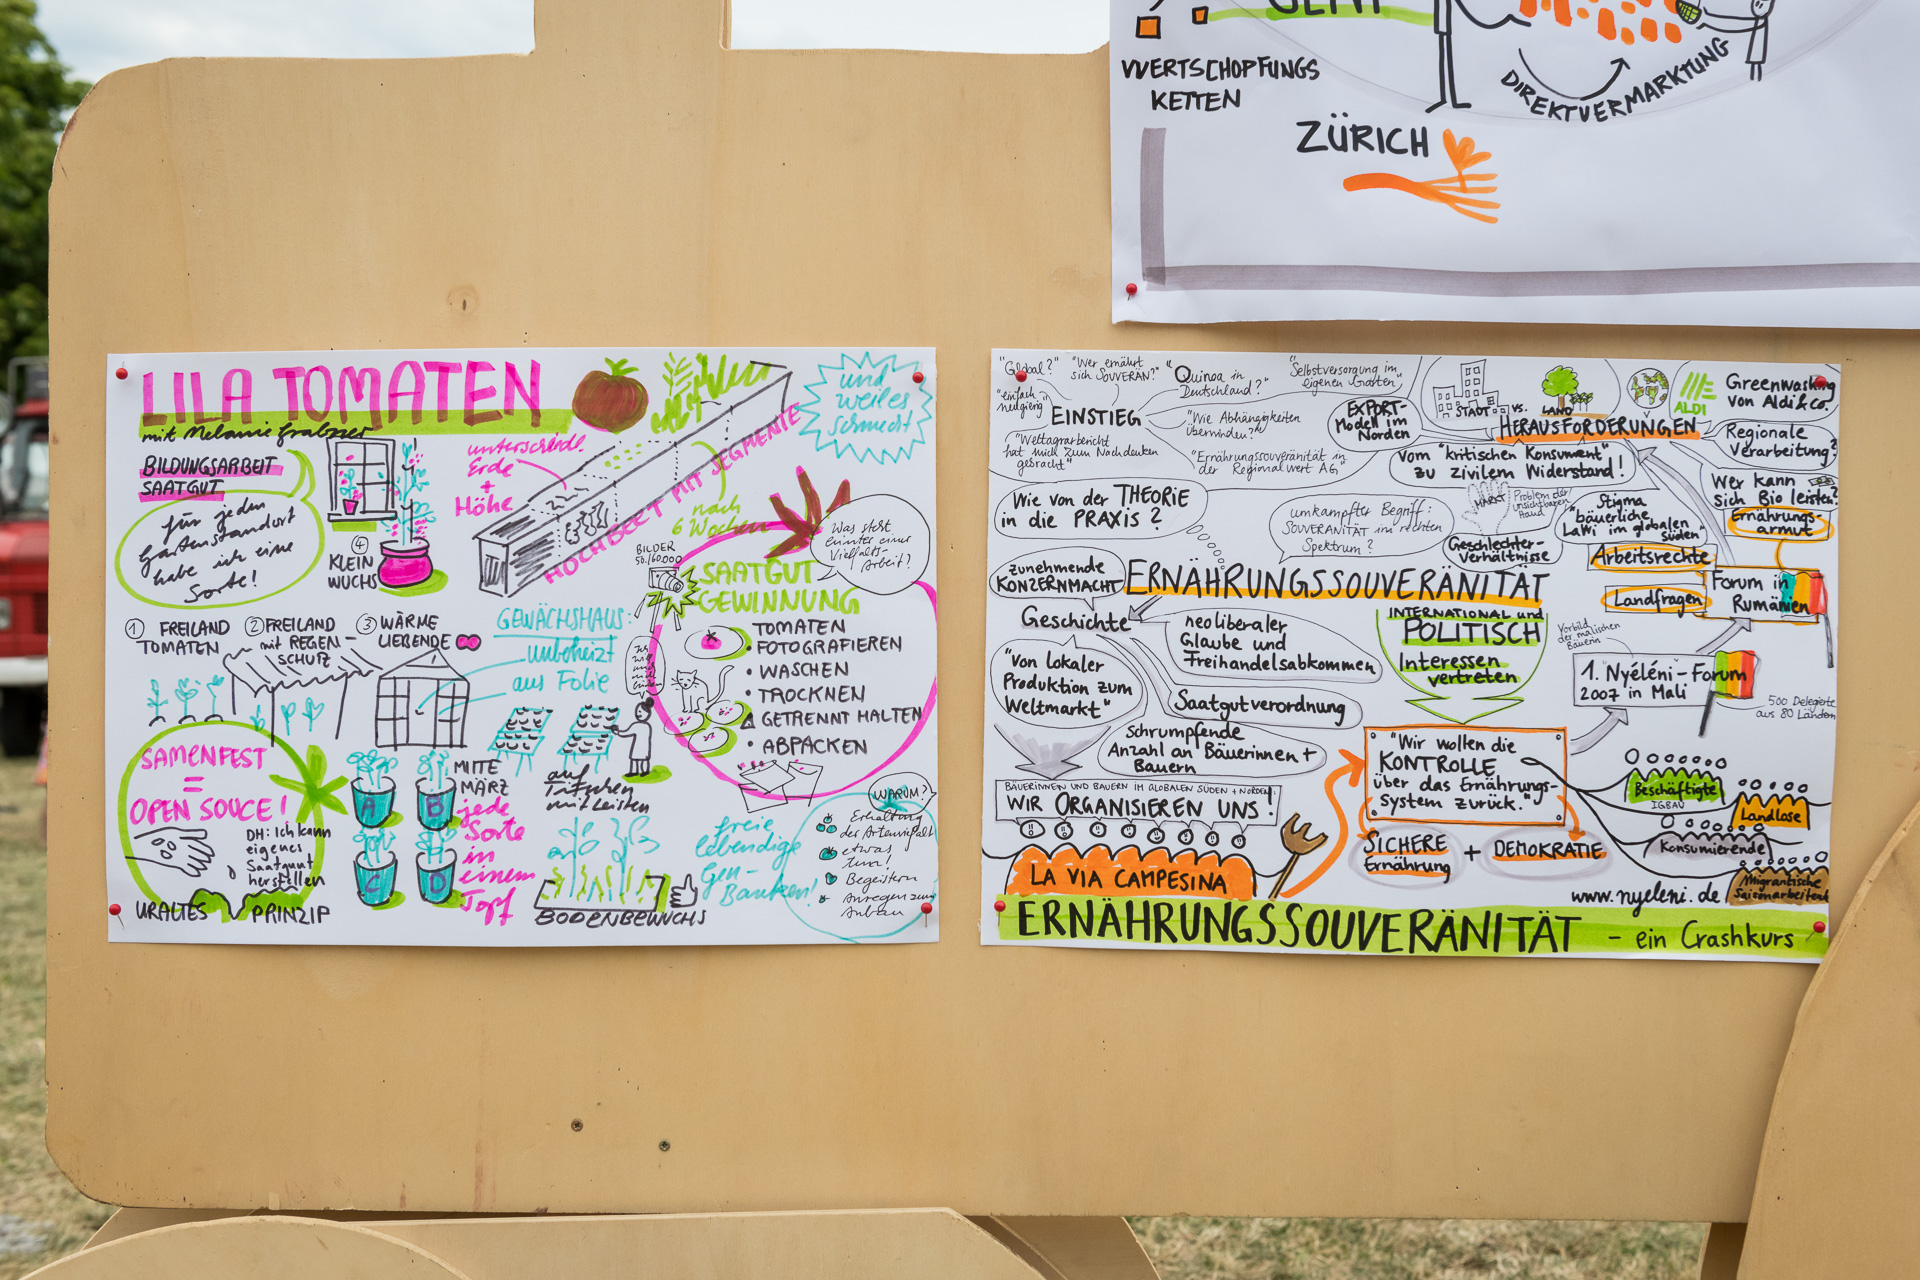 WERTSCHÖPFUNGS
KETTEN
DIREKTVERMARKTUNG
ZÜRICH
LILA TOMATEN
mit Melanie Grabner
BILDUNGSARBEIT
SAATGUT
für jeden
Gartenstandort
habe ich eine
Sorte!
④
KLEIN
WUCHS
unterschiedl.
Erde
+
Höhe
HOCHBEET MIT SEGMENTE
und
weil es
schmeckt
nach
6 Wochen
BILDER
50./60.000
Was steht
hinter einer
Vielfalts-
Arbeit?
① FREILAND
TOMATEN
② FREILAND
mit REGEN-
SCHUTZ
③ WÄRME
LIEBENDE
GEWÄCHSHAUS:
unbeheizt
aus Folie
SAATGUT
GEWINNUNG
TOMATEN
• FOTOGRAFIEREN
• WASCHEN
• TROCKNEN
GETRENNT HALTEN
• ABPACKEN
SAMENFEST
=
OPEN SOUCE!
DH: Ich kann
eigenes
Saatgut
herstellen
URALTES PRINZIP
A
B
C
D
MITE
MÄRZ
jede
Sorte
in
einem
Topf
auf
Tischen
mit Leisten
BODENBEWUCHS
freie
lebendige
Gen-
Banken!
WARUM?
Erhaltung
der Artenvielfalt
etwas
tun!
Begeistern
Anregen zum
Anbau
"Global?"
"Wer ernährt
sich SOUVERÄN?"
"Quinoa in
Deutschland?"
"Selbstversorgung im
eigenen Garten"
"einfach
neugierig"
EINSTIEG
"Wie Abhängigkeiten
überwinden?"
"Weltagrarbericht
hat mich zum Nachdenken
gebracht"
"Ernährungssouveränität in
der Regionalwert AG"
EXPORT-
Modell im
Norden
STADT vs. LAND
ALDI
Greenwashing
von Aldi & Co.
HERAUSFORDERUNGEN
Regionale
Verarbeitung?
vom "kritischen Konsument"
zu zivilem Widerstand!
Wer kann
sich Bio leisten?
Ernährungs-
armut
Wie von der THEORIE
in die PRAXIS?
umkämpfter Begriff:
SOUVERÄNITÄT im rechten
Spektrum?
MARKT
Problem der
unsichtbaren
Hand
Stigma
"bäuerliche
LaWi im globalen
Süden"
Geschlechter-
verhältnisse
Arbeitsrechte
Landfragen
Forum in
Rumänien
zunehmende
KONZERNMACHT
ERNÄHRUNGSSOUVERÄNITÄT
Geschichte
neoliberaler
Glaube und
Freihandelsabkommen
INTERNATIONAL und
POLITISCH
Interessen
vertreten
Vorbild
der malischen
Bäuerin
1. Nyéléni-Forum
2007 in Mali
500 Delegierte
aus 80 Ländern
"Von lokaler
Produktion zum
Weltmarkt"
Saatgutverordnung
schrumpfende
Anzahl an Bäuerinnen +
Bauern
"Wir wollen die
KONTROLLE
über das Ernährungs-
System zurück."
BÄUERINNEN UND BAUERN IM GLOBALEN SÜDEN + NORDEN:
WIR ORGANISIEREN UNS!
LA VIA CAMPESINA
SICHERE
Ernährung
+ DEMOKRATIE
Beschäftigte
IGBAU
Landlose
Konsumierende
Migrantische
Saisonarbeitende
www.nyeleni.de
ERNÄHRUNGSSOUVERÄNITÄT - ein Crashkurs